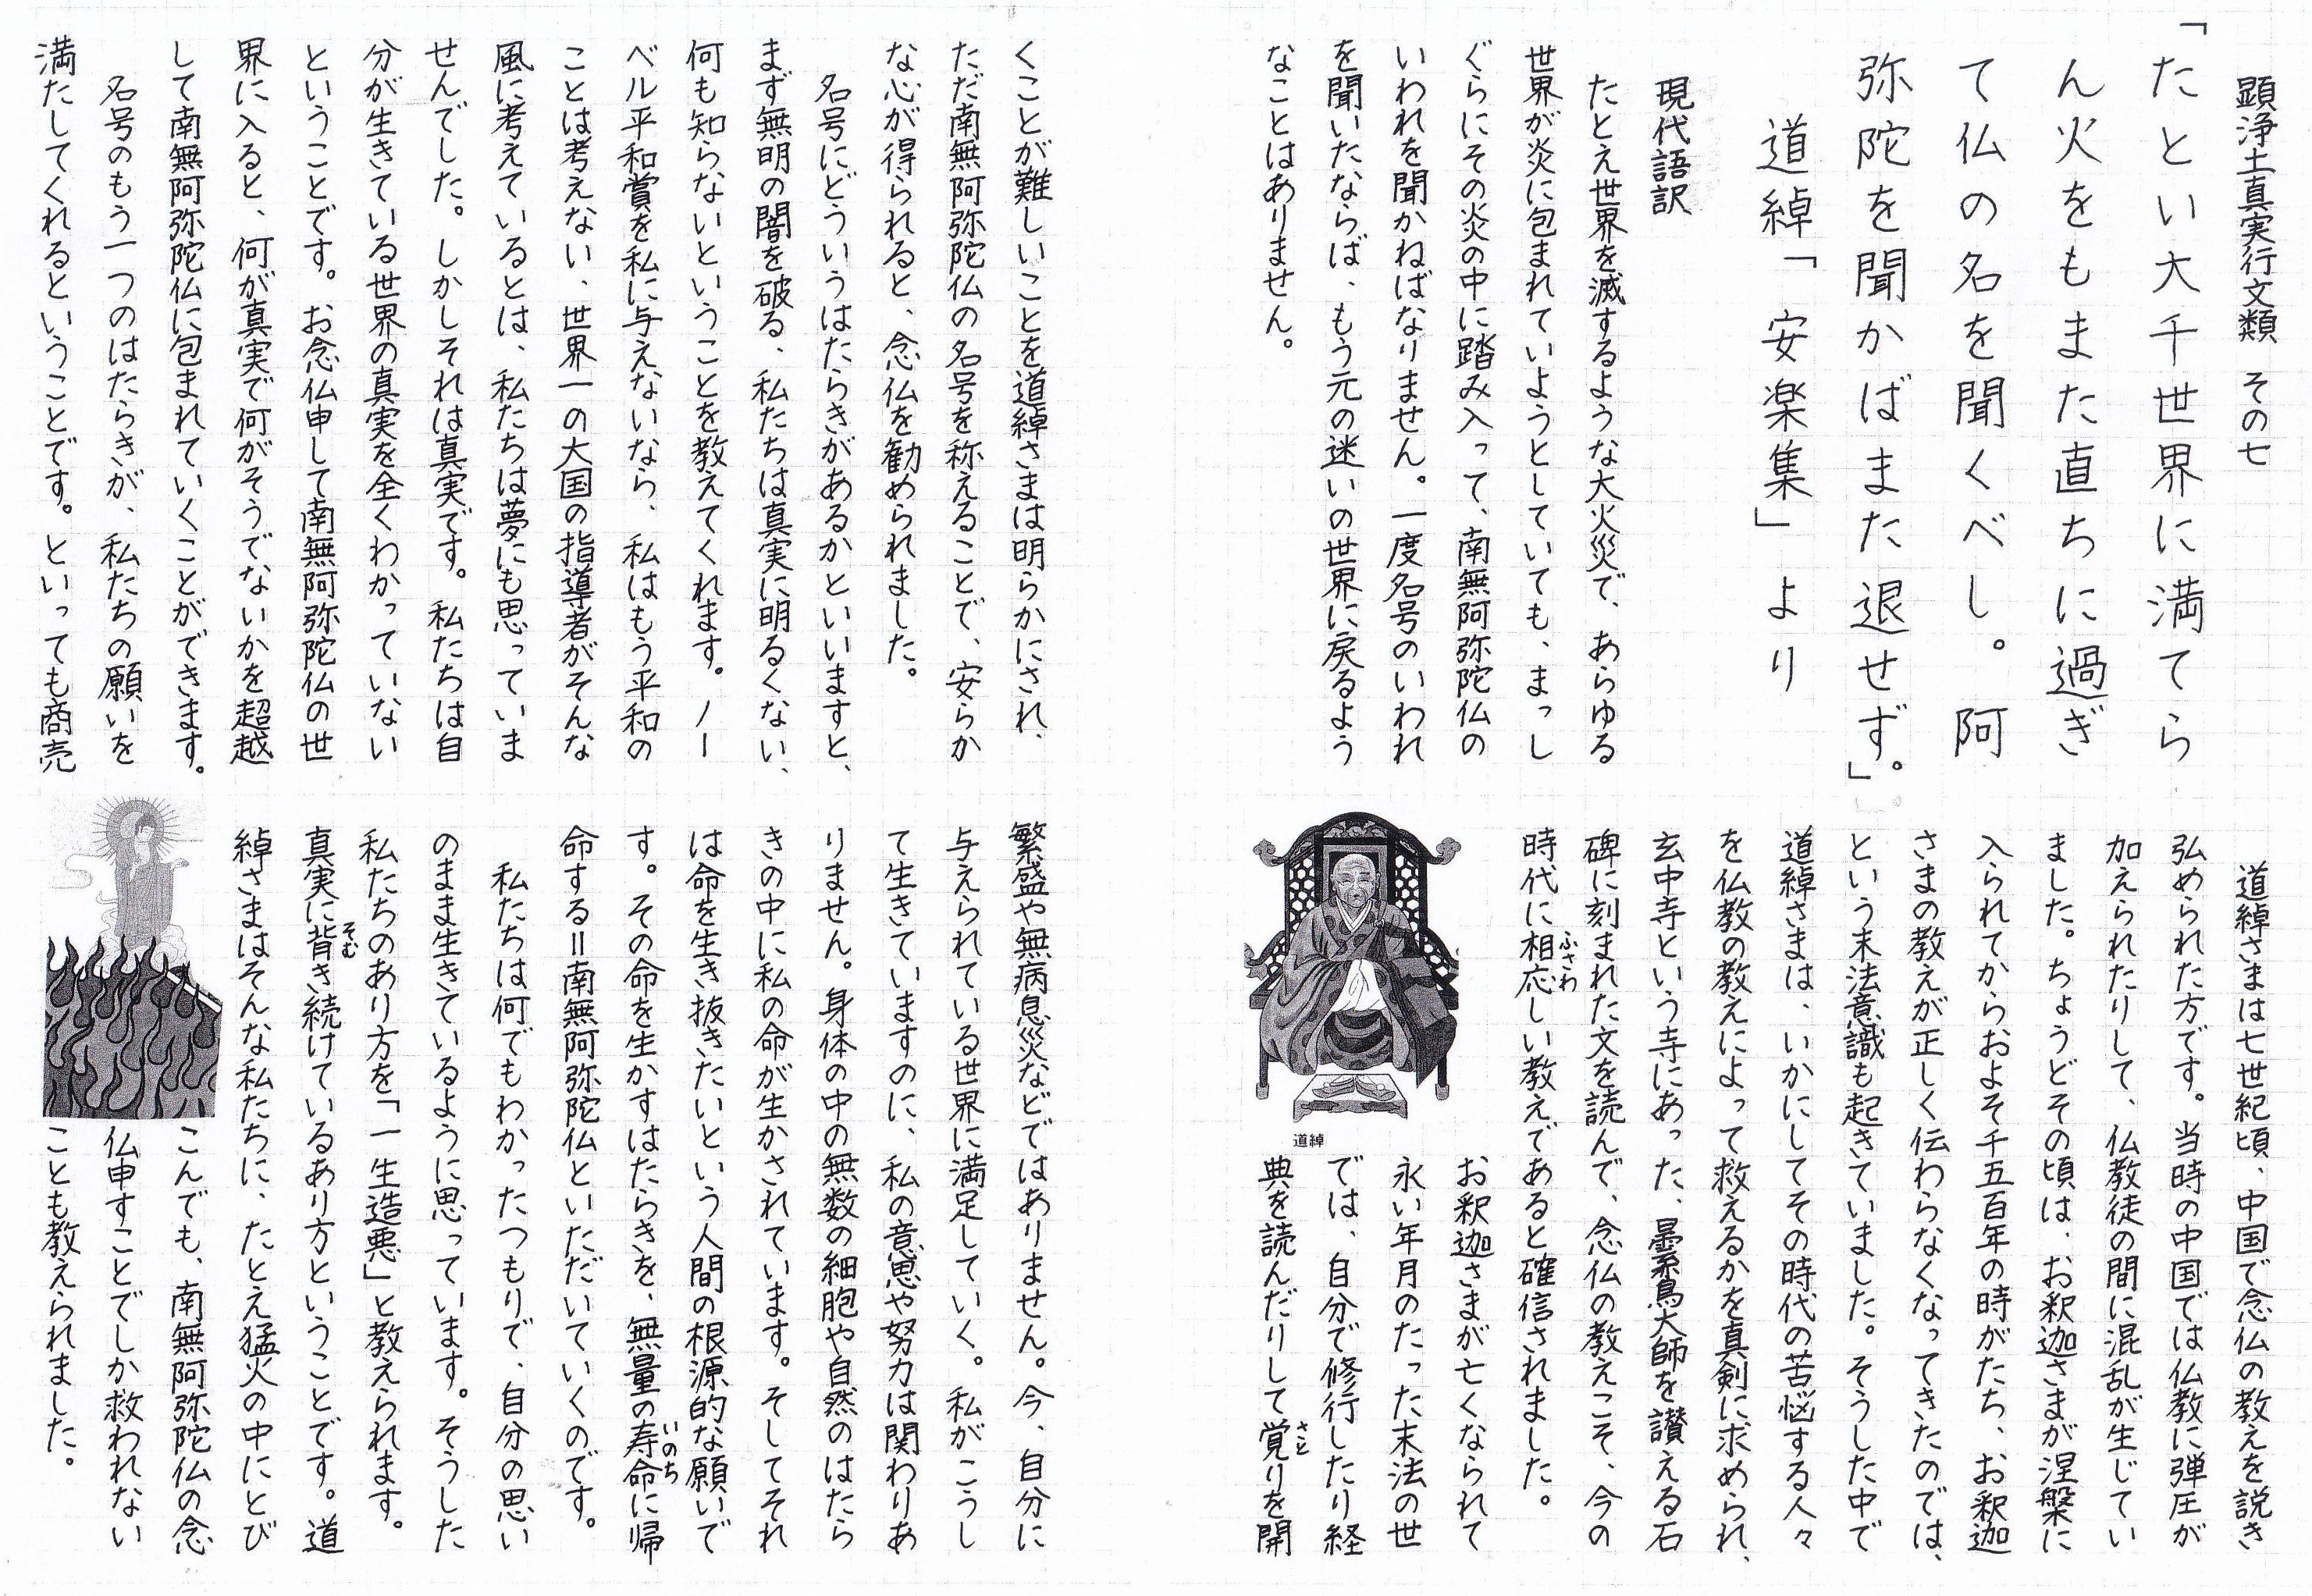 顕浄土真実行文類　その七
「たとい大千世界に満てら
ん火をもまた直ちに過ぎ
て仏の名を聞くべし。阿
弥陀を聞かばまた退せず。」
道綽「安楽集」より
現代語訳
たとえ世界を滅するような大火災で、あらゆる
世界が炎に包まれていようとしていても、まっし
ぐらにその炎の中に踏み入って、南無阿弥陀仏の
いわれを聞かねばなりません。一度名号のいわれ
を聞いたならば、もう元の迷いの世界に戻るよう
なことはありません。
道綽さまは七世紀頃、中国で念仏の教えを説き
弘められた方です。当時の中国では仏教に弾圧が
加えられたりして、仏教徒の間に混乱が生じてい
ました。ちょうどその頃は、お釈迦さまが涅槃に
入られてからおよそ千五百年の時がたち、お釈迦
さまの教えが正しく伝わらなくなってきたのでは、
という末法意識も起きていました。そうした中で
道綽さまは、いかにしてその時代の苦悩する人々
を仏教の教えによって救えるかを真剣に求められ、
玄中寺という寺にあった、曇鸞大師を讃える石
碑に刻まれた文を読んで、念仏の教えこそ、今の
時代に相応しい教えであると確信されました。
ふさわ
お釈迦さまが亡くなられて
永い年月のたった末法の世
では、自分で修行したり経
典を読んだりして覚りを開
さと
道綽
くことが難しいことを道綽さまは明らかにされ、
ただ南無阿弥陀仏の名号を称えることで、安らか
な心が得られると、念仏を勧められました。
名号にどういうはたらきがあるかといいますと、
まず無明の闇を破る、私たちは真実に明るくない、
何も知らないということを教えてくれます。ノー
ベル平和賞を私に与えないなら、私はもう平和の
ことは考えない、世界一の大国の指導者がそんな
風に考えているとは、私たちは夢にも思っていま
せんでした。しかしそれは真実です。私たちは自
分が生きている世界の真実を全くわかっていない
ということです。お念仏申して南無阿弥陀仏の世
界に入ると、何が真実で何がそうでないかを超越
して南無阿弥陀仏に包まれていくことができます。
名号のもう一つのはたらきが、私たちの願いを
満たしてくれるということです。といっても商売
繁盛や無病息災などではありません。今、自分に
与えられている世界に満足していく。私がこうし
て生きていますのに、私の意思や努力は関わりあ
りません。身体の中の無数の細胞や自然のはたら
きの中に私の命が生かされています。そしてそれ
は命を生き抜きたいという人間の根源的な願いで
す。その命を生かすはたらきを、無量の寿命に帰
いのち
命する＝南無阿弥陀仏といただいていくのです。
私たちは何でもわかったつもりで、自分の思い
のまま生きているように思っています。そうした
私たちのあり方を「一生造悪」と教えられます。
真実に背き続けているあり方ということです。道
そむ
綽さまはそんな私たちに、たとえ猛火の中にとび
こんでも、南無阿弥陀仏の念
仏申すことでしか救われない
ことも教えられました。